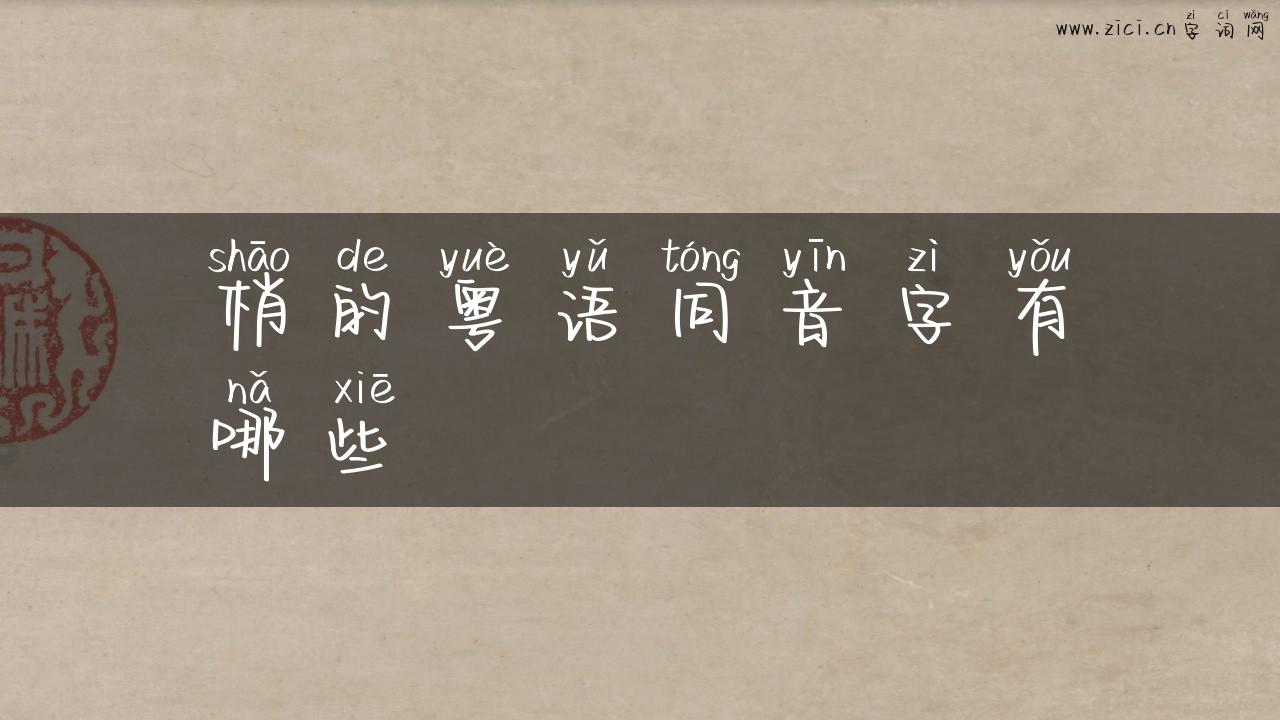 zì cí wǎng
www.zici.cn 字词网
shāo de yuè yǔ tóng yīn zì yǒu
梢的粤语同音字有
nǎ xiē
哪些